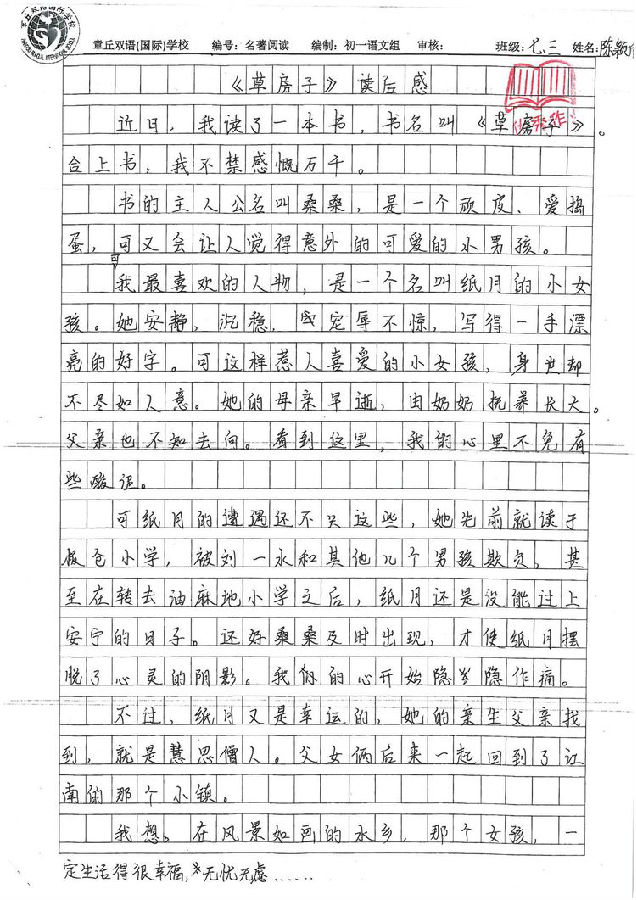 章丘双语(国际)学校 编号：名著阅读 编制：初一语文组 审核： 班级：七.三 姓名：陈颖
《草房子》读后感
近日，我读了一本书，书名叫《草房子》。
合上书，我不禁感慨万千。
书的主人公名叫桑桑，是一个顽皮、爱捣
蛋，可又会让人觉得意外的可爱的小男孩。
我最喜欢的人物，是一个名叫纸月的小女
孩。她安静，沉稳，宠辱不惊，写得一手漂
亮的好字。可这样惹人喜爱的小女孩，身世却
不尽如人意。她的母亲早逝，由奶奶抚养长大。
父亲也不知去向。看到这里，我的心里不免有
些酸涩。
可纸月的遭遇还不只这些，她先前就读于
板仓小学，被刘一水和其他几个男孩欺负，甚
至在转去油麻地小学之后，纸月还是没能过上
安宁的日子。还好桑桑及时出现，才使纸月摆
脱了心灵的阴影。我们的心开始隐隐作痛。
不过，纸月又是幸运的，她的亲生父亲找
到，就是慧思僧人。父女俩后来一起回到了江
南的那个小镇。
我想。在风景如画的水乡，那个女孩，一
定生活得很幸福，无忧无虑……